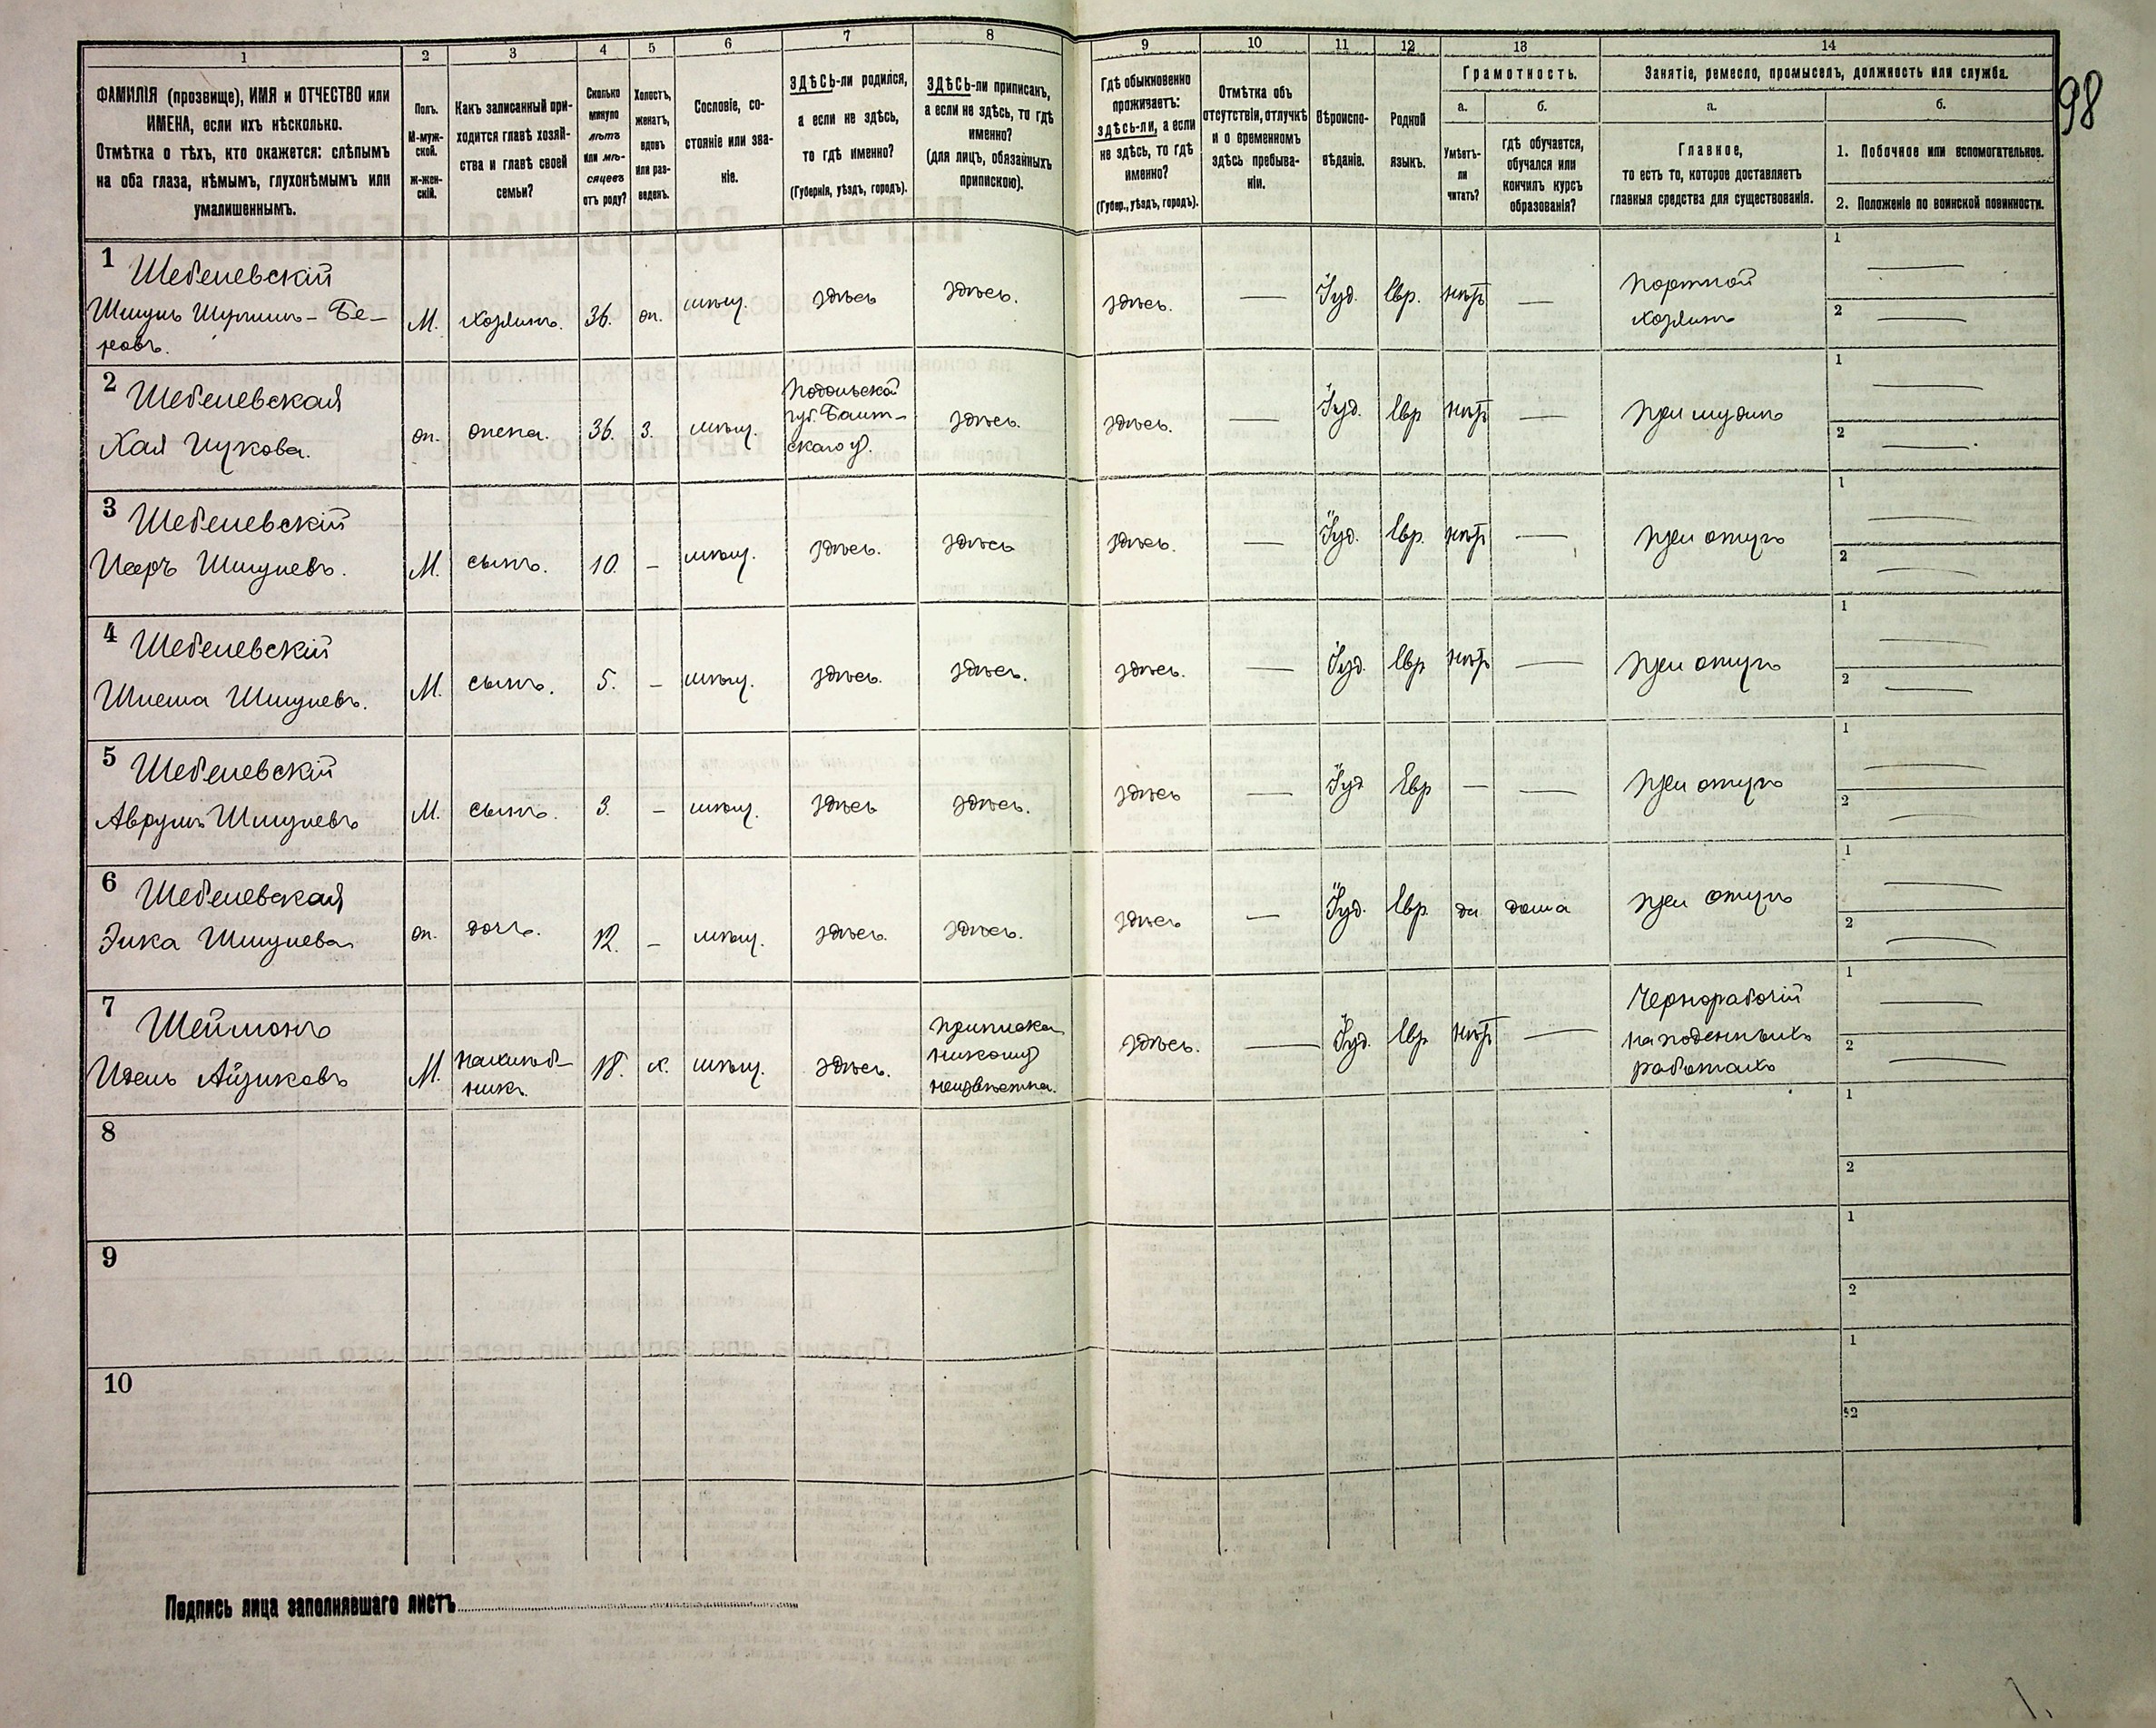 1 2 3 4 5 6 7 8 9 10 11 12 13 14
98
ФАМИЛІЯ (прозвище), ИМЯ и ОТЧЕСТВО или
ИМЕНА, если ихъ нѣсколько.
Отмѣтка о тѣхъ, кто окажется: слѣпымъ
на оба глаза, нѣмымъ, глухонѣмымъ или
умалишеннымъ.
Полъ.
М-муж-
ской.
ж-жен-
скій.
Какъ записанный при-
ходится главѣ хозяй-
ства и главѣ своей
семьи?
Сколько
минуло
лѣтъ
или мѣ-
сяцевъ
отъ роду?
Холостъ,
женатъ,
вдовъ
или раз-
веденъ.
Сословіе, со-
стояніе или зва-
ніе.
ЗДѢСЬ-ли родился,
а если не здѣсь,
то гдѣ именно?
(Губернія, уѣздъ, городъ).
ЗДѢСЬ-ли приписан,
а если не здѣсь, то гдѣ
именно?
(для лицъ, обязанныхъ
припискою).
Гдѣ обыкновенно
проживаетъ:
здѣсь-ли, а если
не здѣсь, то гдѣ
именно?
(Губер., уѣздъ, городъ).
Отмѣтка объ
отсутствіи, отлучкѣ
и о временномъ
здѣсь пребыва-
ніи.
Вѣроиспо-
вѣданіе.
Родной
языкъ.
Грамотность.
а.
Умѣетъ-
ли
читать?
б.
гдѣ обучается,
обучался или
кончилъ курсъ
образованія?
Занятіе, ремесло, промыселъ, должность или служба.
а.
Главное,
то есть то, которое доставляетъ
главныя средства для существованія.
б.
1. Побочное или вспомогательное.
2. Положеніе по воинской повинности.
1 Шебелевскій
Шмуль Шулим - Бе-
ровъ.
М. хозяинъ. 36. мѣщ. здѣсь здѣсь. здѣсь. — Іуд. Евр. нѣтъ —
Портной
хозяинъ
1 —
2 —
2 Шебелевская
Хая Ицкова.
ж. жена. 36. з. мѣщ.
Подольской
губ. Балт-
скаго у.
здѣсь. здѣсь. — Іуд. Евр нѣтъ — при мужѣ
1 —
2 —
3 Шебелевскій
Шмулевъ.
М. сынъ. 10. - мѣщ. здѣсь. здѣсь здѣсь. — Іуд. Евр. нѣтъ — при отцѣ
1 —
2 —
4 Шебелевскій
Шлема Шмулевъ.
М. сынъ. 5. - мѣщ. здѣсь. здѣсь. здѣсь. — Іуд. Евр нѣтъ — при отцѣ
1 —
2 —
5 Шебелевскій
Аврумъ Шмулевъ
М. сынъ. 3. - мѣщ. здѣсь здѣсь. здѣсь — Іуд Евр — — при отцѣ
1 —
2 —
6 Шебелевская
Элка Шмулева
ж. дочь. 12. - мѣщ. здѣсь. здѣсь. здѣсь — Іуд. Евр. да дома при отцѣ
1 —
2 —
7 Шейманъ
Идель Айзиковъ
М. нахлѣб-
никъ.
18. х. мѣщ. здѣсь.
Приписка
никому
неизвѣстна.
здѣсь. — Іуд. Евр нѣтъ —
Чернорабочій
на поденныхъ
работахъ
1 —
2 —
8
1
2
9
1
2
10
1
2
Подпись лица заполнявшаго листъ